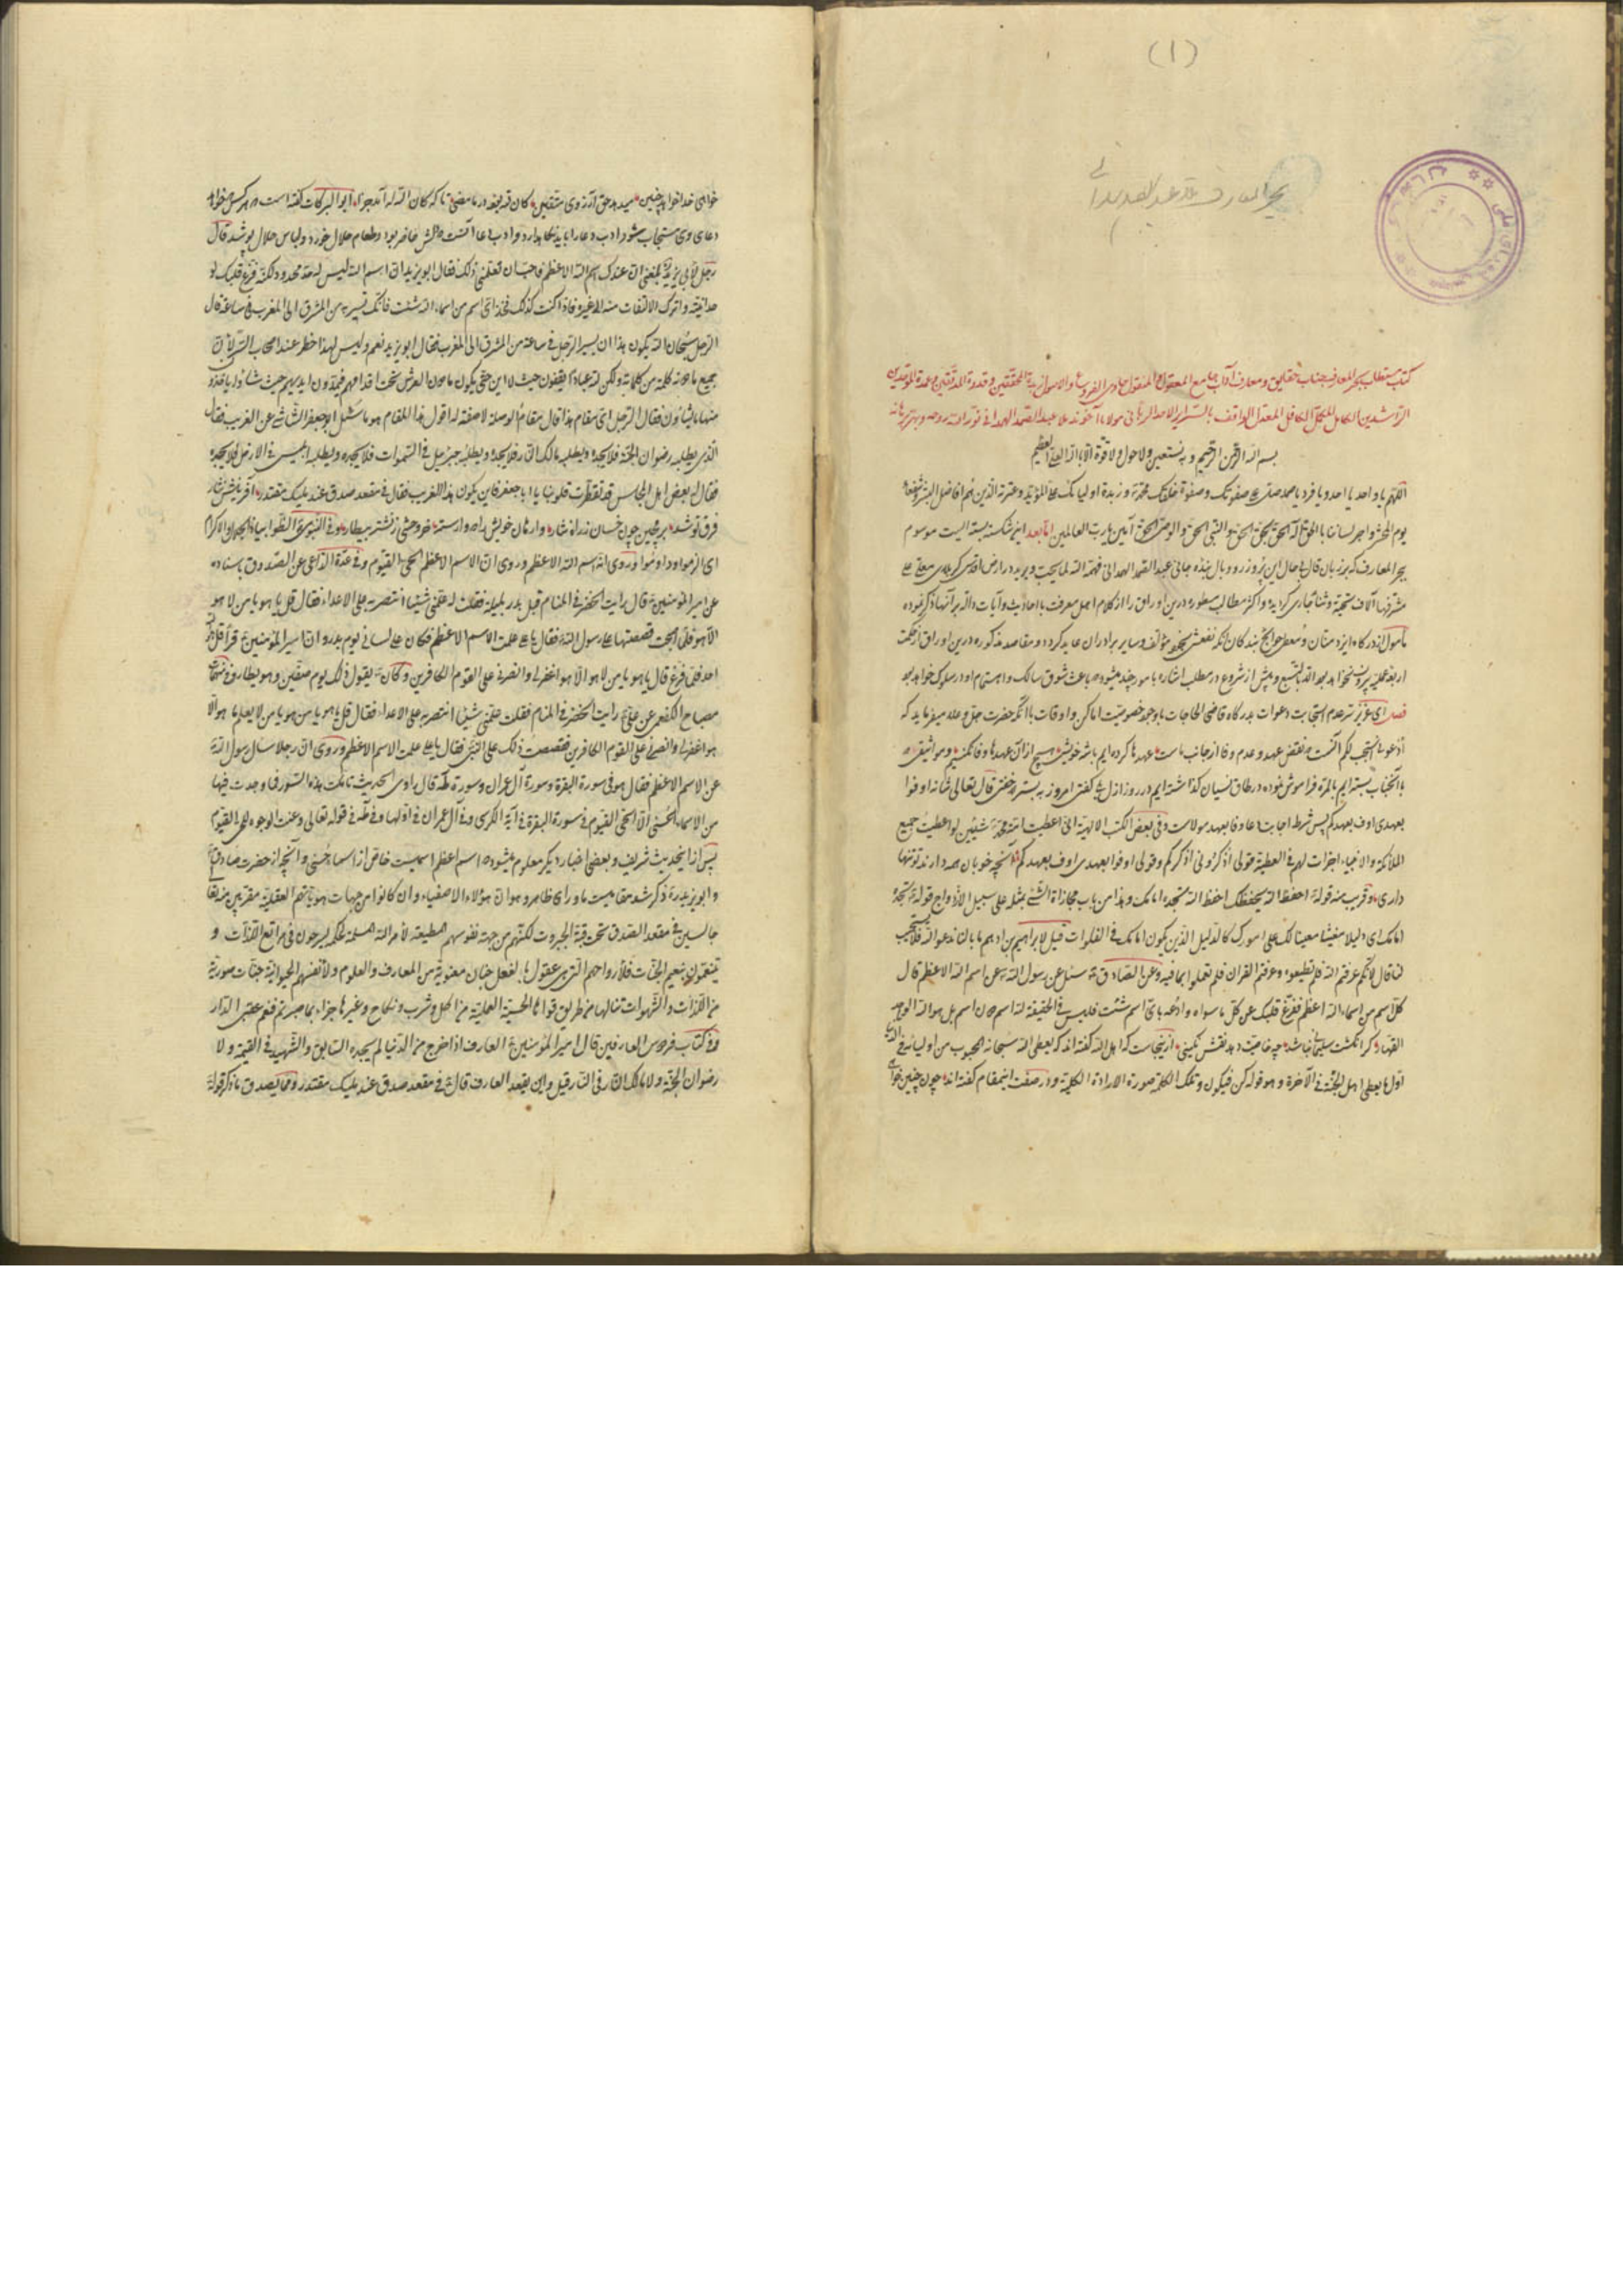 (١)
بحر المعارف ملا عبد الصمد همدانی
کتاب مستطاب بحر المعارف جناب حقایق و معارف آداب جامع المعقول و المنقول حاوی الفروع و الاصول زبدة المحققین و قدوة المدققین و عمدة
الراشدین الکامل المکمل المعدل الواقف باسرار الاحد الربانی مولانا آخوند ملا عبد الصمد الهمدانی نور الله روحه و بهر برهانه
بسم الله الرحمن الرحیم و به نستعین و لا حول و لا قوة الا بالله العلی العظیم
اللهم یا واحد یا احد و یا فرد یا صمد صل علی صفوتک و صفوة خلقک محمد و زبدة اولیائک علی المؤید و عترته الذین هم افاضل البشر و شفعاء
یوم المحشر و اجر لساننا بالحق آله الحق بحق الحق و النبی الحق و الوصی الحق آمین یا رب العالمین اما بعد این شکسته بسته ایست موسوم
ببحر المعارف که بر زبان قال بی حال این پر وزر و وبال بنده جانی عبد الصمد الهمدانی فهمه الله لما یحب و یرید در ارض اقدس کربلای معلی علی
مشرفها آلاف تحیة و ثنا جاری گردیده و اکثر مطالب مسطوره درین اوراق را از کلام اهل معرفت با احادیث و آیات داله بر آنها ذکر نموده
مامول از درگاه ایزد منان و معطی حوائج بندگان آنکه نفعش بمؤلف و سایر برادران عاید گردد و مقاصد مذکوره درین اوراق از حکمت
اربعه عملیه بیرون نخواهد بود الا بالتبع و پیش از شروع در مطلب اشاره بامور چند میشود که باعث شوق سالک و اهتمام او در سلوک خواهد بود
فصل ای عزیز سر عدم استجابت دعوات بدرگاه قاضی الحاجات با وجود خصوصیت اماکن و اوقات با آنکه حضرت جل و علا میفرماید که
ادعونی استجب لکم آنست که نقض عهد و عدم وفا از جانب ماست عهدها کرده ایم با شه خویش هیچ از آن عهدها وفا نکنیم و مواثیقی که
با آنجناب بسته ایم بالمره فراموش نموده در طاق نسیان گذاشته ایم در روز ازل بلی گفتن امروز به بستر خفتن قال تعالی شانه اوفوا
بعهدی اوف بعهدکم پس شرط اجابت دعا وفا بعهد مولاست و فی بعض الکتب الالهیة انی اعطیت امة محمد شیئین لو اعطیت جمیع
الملائکة و الانبیاء اجزأت لهم فی العطیة قولی اذکرونی اذکرکم و قولی اوفوا بعهدی اوف بعهدکم آنچه خوبان همه دارند تو تنها
داری و قریب منه قوله احفظ الله یحفظک احفظ الله تجده امامک و هذا من باب مجازاة الشیء بمثله علی سبیل الازدواج قوله تجده
امامک ای دلیلا مغیثا معینا لک علی امورک کالدلیل الذین یکون امامک فی الفلوات قیل لابراهیم بن ادهم ما بالنا ندعو الله فلا یستجیب
لنا قال لانکم عرفتم الله فلم تطیعوه و عرفتم القران فلم تعملوا بما فیه و عن الصادق سئل عن رسول الله عن اسم الله الاعظم قال
کل اسم من اسماء الله اعظم ففرغ قلبک عن کل ما سواه و ادعه بای اسم شئت فلیس فی الحقیقة لله اسم دون اسم بل هو الله الواحد
القهار گر انگشت سلیمانی نباشد چه خاصیت دهد نقش نگینی از اینجاست که اهل الله گفته اند که یعطی الله سبحانه المحبوب من اولیائه فی الدنیا
اول ما یعطی اهل الجنة فی الآخرة و هو قوله کن فیکون و تلک الکلمة صورة الارادة الکلیة و در صفت اینمقام گفته اند چون چنین خواهی
خواهی خدا خواهد چنین میدهد حق آرزوی متقین کان لله بوده در ما مضی تا که کان الله له آمد جزا ابو البرکات گفته است هر کس خواهد
دعای وی مستجاب شود ادب دعا را باید نگاهدارد و ادب دعا آنست که دلش حاضر بود و طعام حلال خورد و لباس حلال پوشد قال
رجل لابی یزید بلغنی ان عندک اسم الله الاعظم فاحب ان تعلمنی ذلک فقال ابو یزید ان اسم الله لیس له حد محدود ولکنه فرغ قلبک لو
حدانیته و اترک الالتفات منه الی غیره فاذا کنت کذلک فخذ ای اسم من اسماء الله شئت فانک تسیر به من المشرق الی المغرب فی ساعة قال
الرجل سبحان الله یکون هذا ان یسیر الرجل فی ساعة من المشرق الی المغرب فقال ابو یزید نعم و لیس لهذا خطر عند اصحاب السر لان
منها ما یشاؤن فقال الرجل ای مقام هذا قال مقام الوصلة لا صفة له اقول هذا المقام هو ما سئل ابو جعفر الشاشی عن الغریب فقال
الذی یطلبه رضوان الجنة فلا یجده و یطلبه مالک النار فلا یجده و یطلبه جبرئیل فی السموات فلا یجده و یطلبه ابلیس فی الارض فلا یجده
فقال بعض اهل المجلس قد تفطرت قلوبنا یا ابا جعفر فاین یکون هذا الغریب فقال فی مقعد صدق عند ملیک مقتدر
ای الزموا و داوموا و روی انه اسم الله الاعظم و روی ان الاسم الاعظم الحی القیوم و فی عدة الداعی عن الصدوق باسناده
عن امیر المؤمنین قال رایت الخضر فی المنام قبل بدر بلیلة فقلت له علمنی شیئا انتصر به علی الاعداء فقال قل یا هو یا من لا هو
الا هو فلما اصبحت قصصتها علی رسول الله فقال یا علی علمت الاسم الاعظم فکان علی لسانی یوم بدر و ان امیر المؤمنین قرأ قل هو الله
احد فلما فرغ قال یا هو یا من لا هو الا هو اغفر لی و انصرنی علی القوم الکافرین و کان یقول ذلک یوم صفین و هو یطارد و منها
مصباح الکفعمی عن علی رایت الخضر فی المنام فقلت علمنی شیئا انتصر به علی الاعداء فقال قل یا هو یا من هو یا من لا یعلم ما هو الا
هو اغفر لی و انصرنی علی القوم الکافرین فقصصت ذلک علی النبی فقال یا علی علمت الاسم الاعظم و روی ان رجلا سال رسول الله
عن الاسم الاعظم فقال هو فی سورة البقرة و سورة آل عمران و سورة طه قال راوی الحدیث تاملت هذه السور فما وجدت فیها
من الاسماء الحسنی الا الحی القیوم فی سورة البقرة فی آیة الکرسی و فی آل عمران فی اولها و فی طه فی قوله تعالی و عنت الوجوه للحی القیوم
پس از اینحدیث شریف و بعضی اخبار دیگر معلوم میشود که اسم اعظم اسمیست خاص از اسماء حسنی و آنچه از حضرت صادق
و ابو یزید ذکر شد مقامیست ماورای ظاهر و هو ان هؤلاء الاصفیاء و ان کانوا من جهات هویاتهم العقلیة مقربین
جالسین فی مقعد الصدق تحت قبة الجبروت لکنهم من جهة نفوسهم المطیعة لامر الله المسلمة لحکمه یسرحون فی مراتع اللذات و
یتنعمون بنعیم الجنات فلارواحهم التی هی عقول بالفعل جنان معنویة من المعارف و العلوم و لانفسهم الحیوانیة جنات صوریة
من اللذات و الشهوات تنالها من طریق قواها الحسیة العملیة من اکل و شرب و نکاح و غیرها جزاء بما صبرتم فنعم عقبی الدار
و فی کتاب فردوس العارفین قال امیر المؤمنین العارف اذا خرج من الدنیا لم یجده السابق و الشهید فی القیمة و لا
رضوان الجنة و لا مالک النار فی النار قیل و این یقعد العارف قال فی مقعد صدق عند ملیک مقتدر و مما یصدق ما ذکر قوله